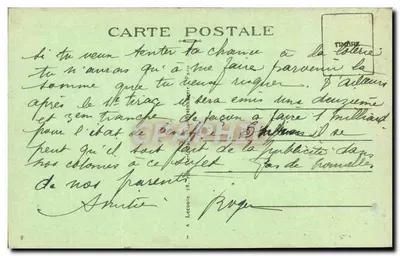 CARTE POSTALE
TIMBRE
Si tu veux tenter ta chance à la loterie
tu n'auras qu'à me faire parvenir la
somme que tu veux risquer. D'ailleurs
après le 1er tirage il sera émis une deuxième
et 3em tranche de façon à faire 1 milliard
pour l'état il se
peut qu'il soit fait de la publicité dans
nos colonies à ce sujet. Pas de nouvelles
de nos parents
Roger